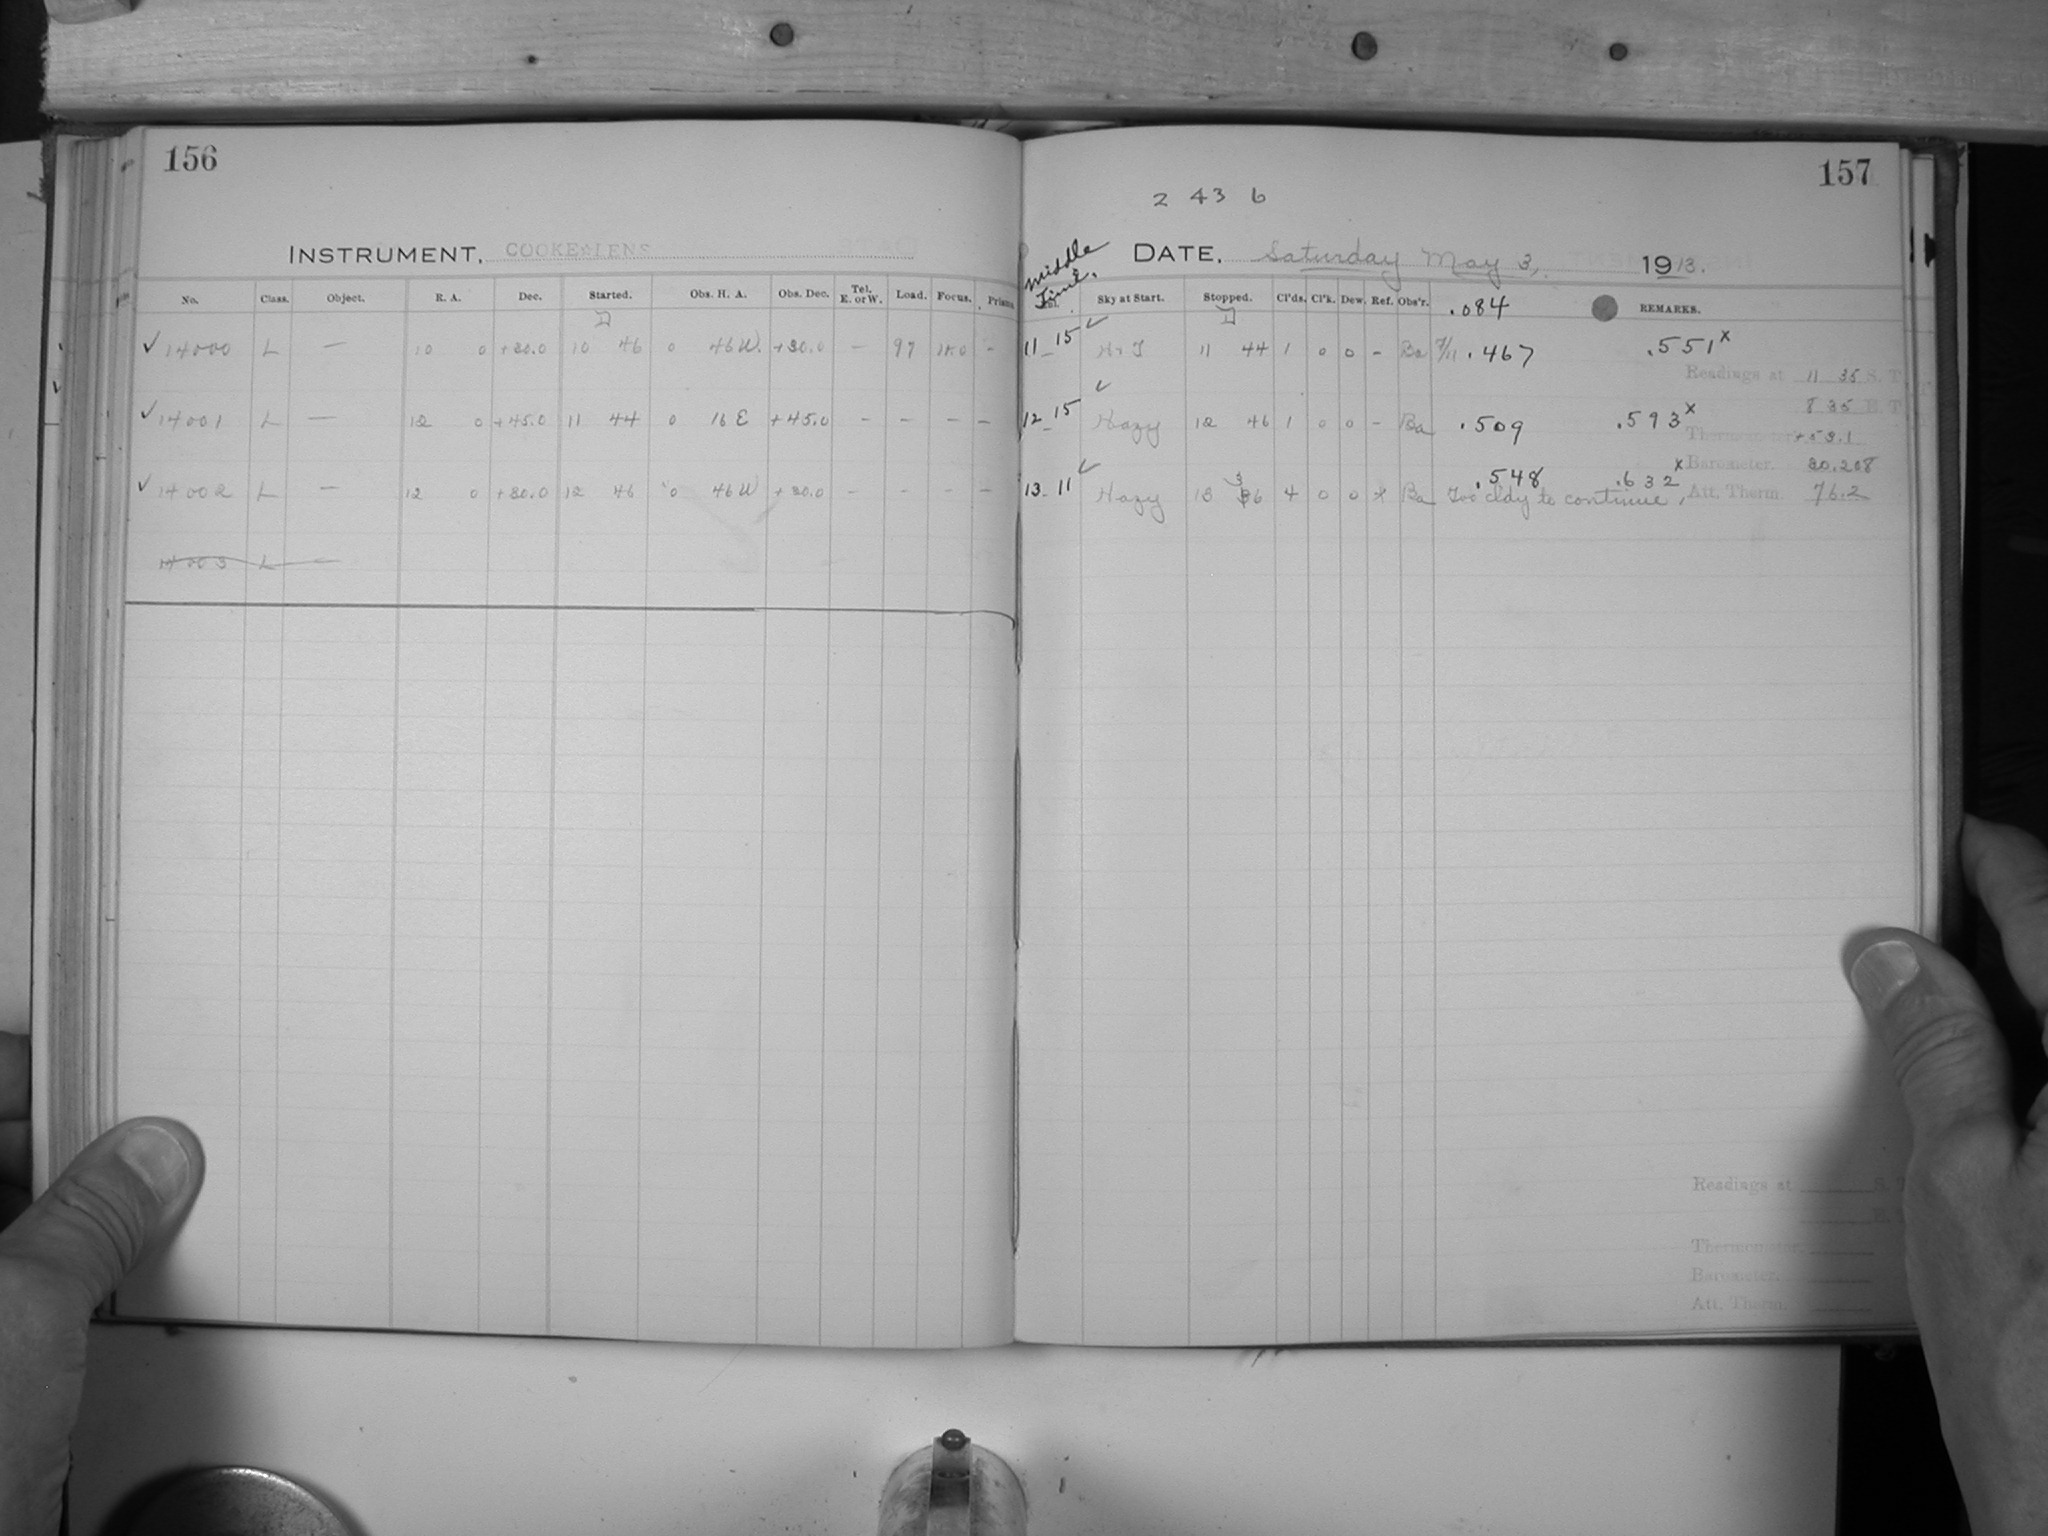 156
INSTRUMENT, COOKE LENS
No. Class. Object. R. A. Dec. Started. Obs. H. A. Obs. Dec. Tel. E. or W. Load. Focus. Prism.
✓ 14000 L — 10 0 +30.0 10 46 0 46 W. +30.0 — 97 —
✓ 14001 L — 12 0 +45.0 11 44 0 16 E +45.0 — — — —
✓ 14002 L — 12 0 +30.0 12 46 0 46 W +30.0 — — — —
14003 L —
157
2 43 6
Middle Time.
DATE, Saturday May 3, 1913.
Sky at Start. Stopped. Cl'ds. Cl'k. Dew. Ref. Obs'r. .084 REMARKS.
11 15 ✓ 11 44 1 0 0 - Ba .467 .551x
Readings at 11 35 S. T.
12 15 ✓ Hazy 12 46 1 0 0 - Ba .509 .593x
8 35
Thermometer +53.1
Barometer. 30.208
13 11 ✓ Hazy 13 36 4 0 0 x Ba .548 .632x
Too cldy to continue.
Att. Therm. 76.2
Readings at
Thermometer.
Barometer.
Att. Therm.